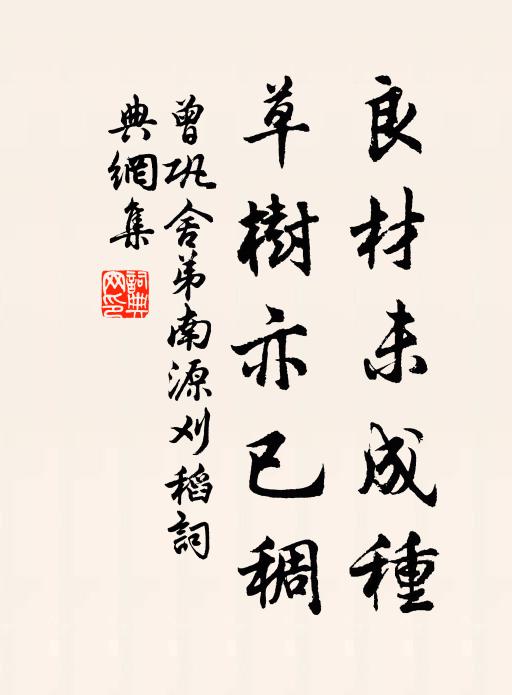 良材未成種
草樹亦已稠
曾巩舍弟南源刈稻詞
典網集
詞典
网印